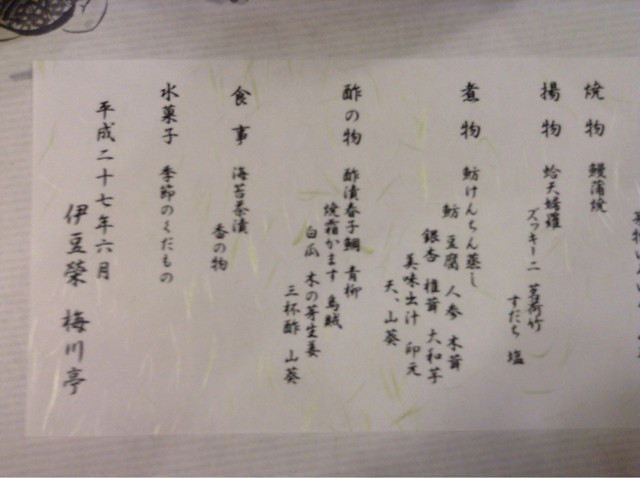 焼物 鰻蒲焼
揚物 蛤天婦羅
ズッキーニ 茗荷竹
すだち 塩
煮物 魴けんちん蒸し
魴 豆腐 人参 木茸
銀杏 椎茸 大和芋
美味出汁 卯元
天、山葵
酢の物 酢漬春子鯛 青柳
焼霜かます 烏賊
白瓜 木の芽生姜
三杯酢 山葵
食事 海苔茶漬
香の物
水菓子 季節のくだもの
平成二十七年六月
伊豆榮 梅川亭